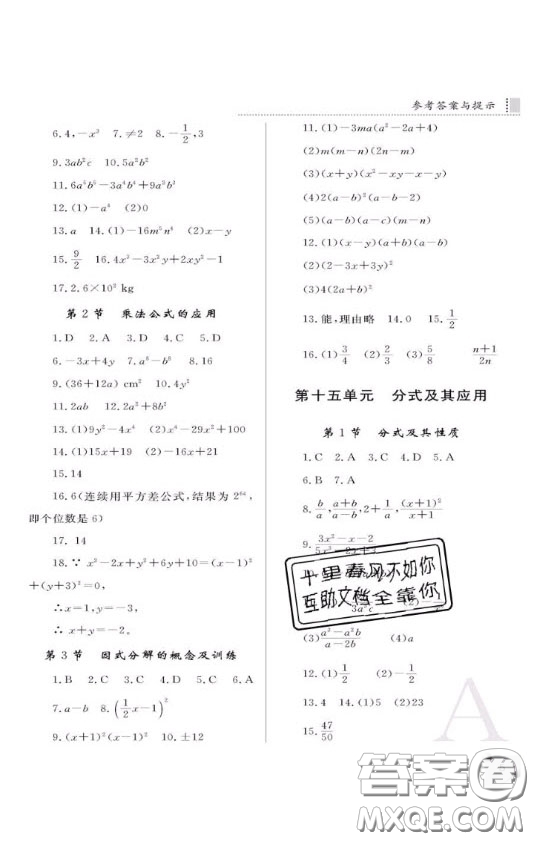 参考答案与提示
6.4,－x²　7.≠2　8.－1/2,3
9.3ab²c　10.5a²b²
11.6a³b⁵－3a⁴b⁴＋9a⁵b³
12.(1)－a⁶　(2)0
13.a　14.(1)－16m⁵n⁴　(2)x－y
15.9/2　16.4x³－3x²y＋2xy²－1
17.2.6×10³ kg
第2节　乘法公式的应用
1.D　2.A　3.D　4.D　5.C
6.－3x＋4y　7.a⁸－b⁸　8.16
9.(36＋12a) cm²　10.4y²
11.2ab　12.2a²＋b²
13.(1)9y²－4x⁴　(2)x⁴－29x²＋100
14.(1)15x＋19　(2)－16x＋21
15.14
16.6(连续用平方差公式,结果为2⁶⁴,
即个位数是6)
17．14
18.∵ x²－2x＋y²＋6y＋10＝(x－1)²
＋(y＋3)²＝0,
∴x＝1,y＝－3.
∴ x＋y＝－2.
第3节　因式分解的概念及训练
1.B　2.C　3.B　4.C　5.C　6.A
7.a－b　8.(1/2x－1)²
9.(x＋1)²(x－1)²　10.±12
11.(1)－3ma(a²－2a＋4)
(2)m(m－n)(2n－m)
(3)(x＋y)(x²－xy－x－y)
(4)2(a－b)²(a－b－2)
(5)(a－b)(a－c)(m－n)
12.(1)(x－y)(a＋b)(a－b)
(2)(2－3x)²(2＋3x)²
(3)4(2a＋b)²
13.能,理由略　14.0　15.1/2
16.(1)3/4　(2)2/3　(3)5/8　(n＋1)/2n
第十五单元　分式及其应用
第1节　分式及其性质
1.C　2.A　3.C　4.D　5.A
6.B　7.A
8.b/a,(a＋b)/(a－b),2＋1/a,(x＋1)²/(x＋1)
9.
十里春风不如你
互助文档全靠你
(3)(a²－a²b)/(a－2b)　(4)a
12.(1)1/2　(2)－1/2
13.4　14.(1)5　(2)23
15.47/50
A
答案圈
MXQE.COM